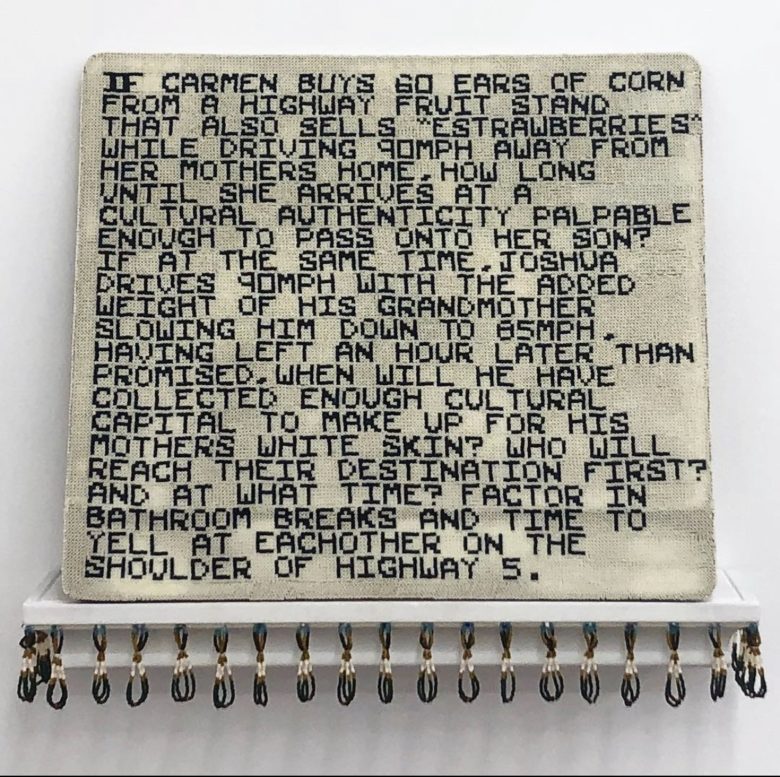 IF CARMEN BUYS 60 EARS OF CORN
FROM A HIGHWAY FRUIT STAND
THAT ALSO SELLS "ESTRAWBERRIES"
WHILE DRIVING 90MPH AWAY FROM
HER MOTHERS HOME, HOW LONG
UNTIL SHE ARRIVES AT A
CULTURAL AUTHENTICITY PALPABLE
ENOUGH TO PASS ONTO HER SON?
IF AT THE SAME TIME, JOSHUA
DRIVES 90MPH WITH THE ADDED
WEIGHT OF HIS GRANDMOTHER
SLOWING HIM DOWN TO 85MPH,
HAVING LEFT AN HOUR LATER THAN
PROMISED, WHEN WILL HE HAVE
COLLECTED ENOUGH CULTURAL
CAPITAL TO MAKE UP FOR HIS
MOTHERS WHITE SKIN? WHO WILL
REACH THEIR DESTINATION FIRST?
AND AT WHAT TIME? FACTOR IN
BATHROOM BREAKS AND TIME TO
YELL AT EACHOTHER ON THE
SHOULDER OF HIGHWAY 5.